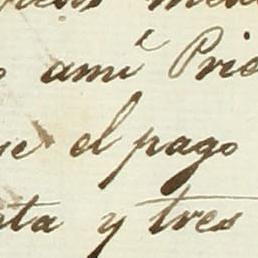 amí Prie
el pago
ta y tres